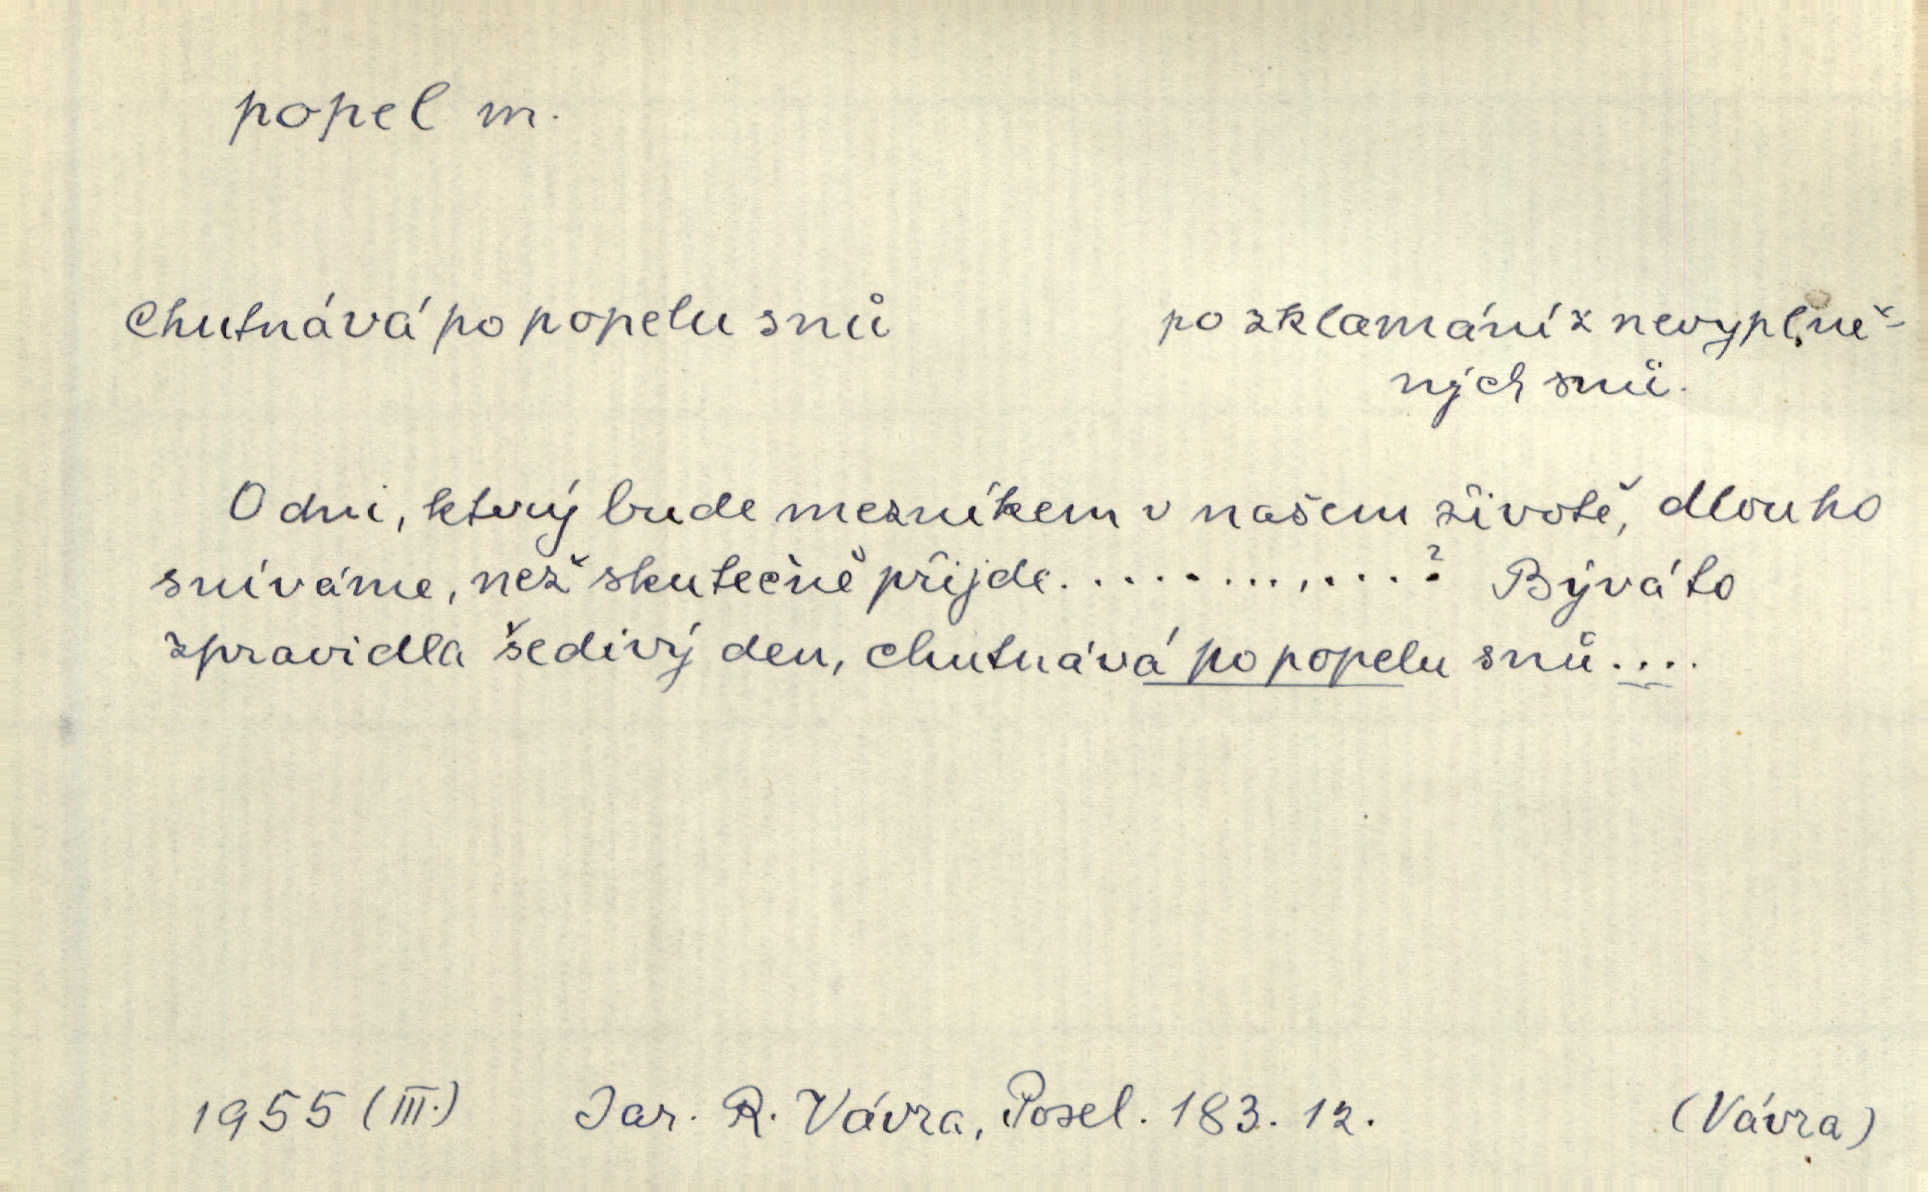 popel m.
Chutnává po popelu snů po zklamání z nevyplně-
ných snů.
O dni, který bude mezníkem v našem životě, dlouho
sníváme, než skutečně přijde. . . . . . . . . . . . ? Bývá to
zpravidla šedivý den, chutnává po popelu snů....
1955 (III.) Jar. R. Vávra, Posel. 183. 12. (Vávra)